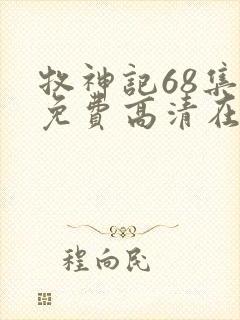 牧神記68集
免費高清在
程向民